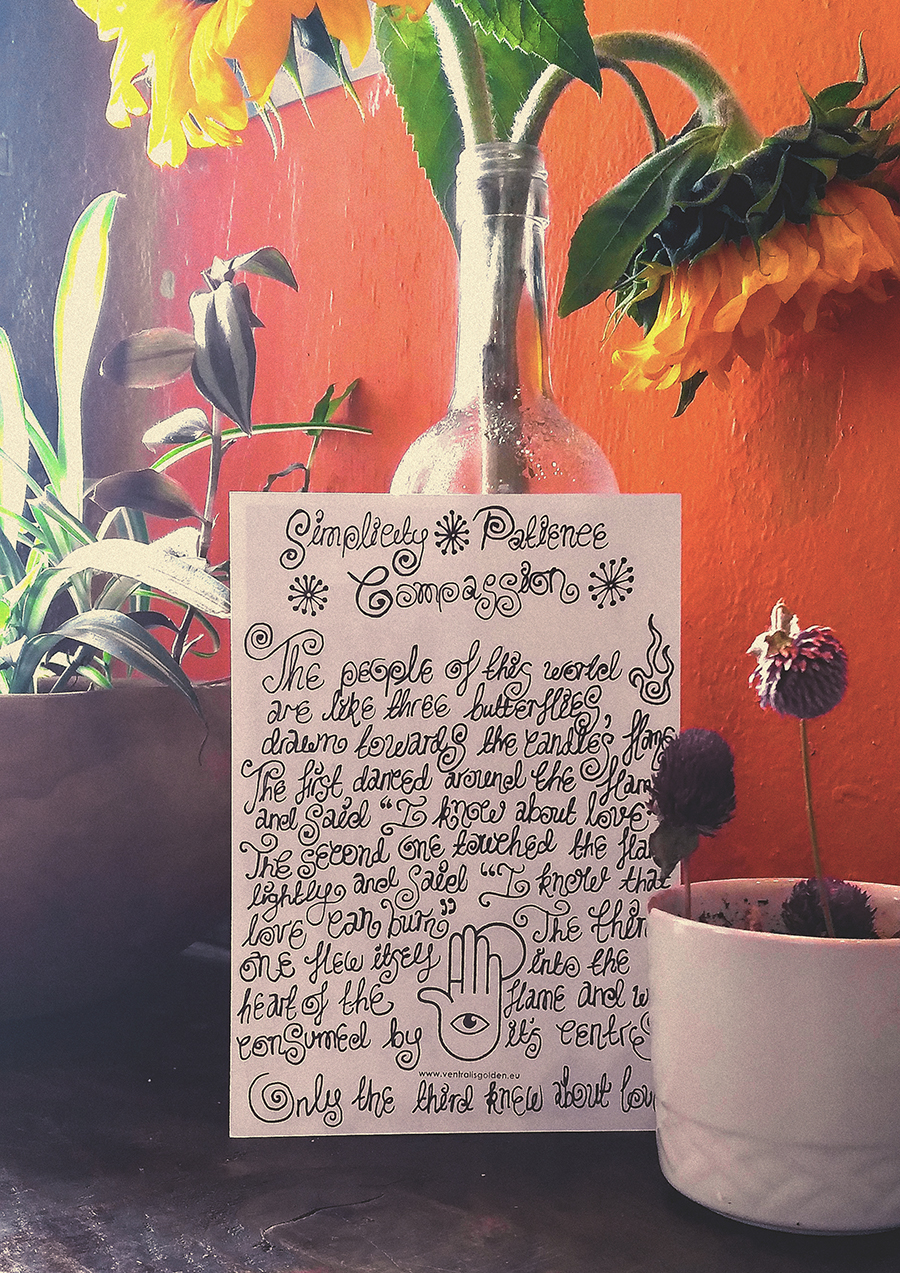 Simplicity Patience
Compassion
The people of this world
are like three butterflies,
drawn towards the candles' flame
The first danced around the flam
and said "I know about love
The second one touched the fla
lightly and said "I know that
love can burn" The thir
one flew itself into the
heart of the flame and w
consumed by it's centre
www.ventralisgolden.eu
Only the third knew about lov